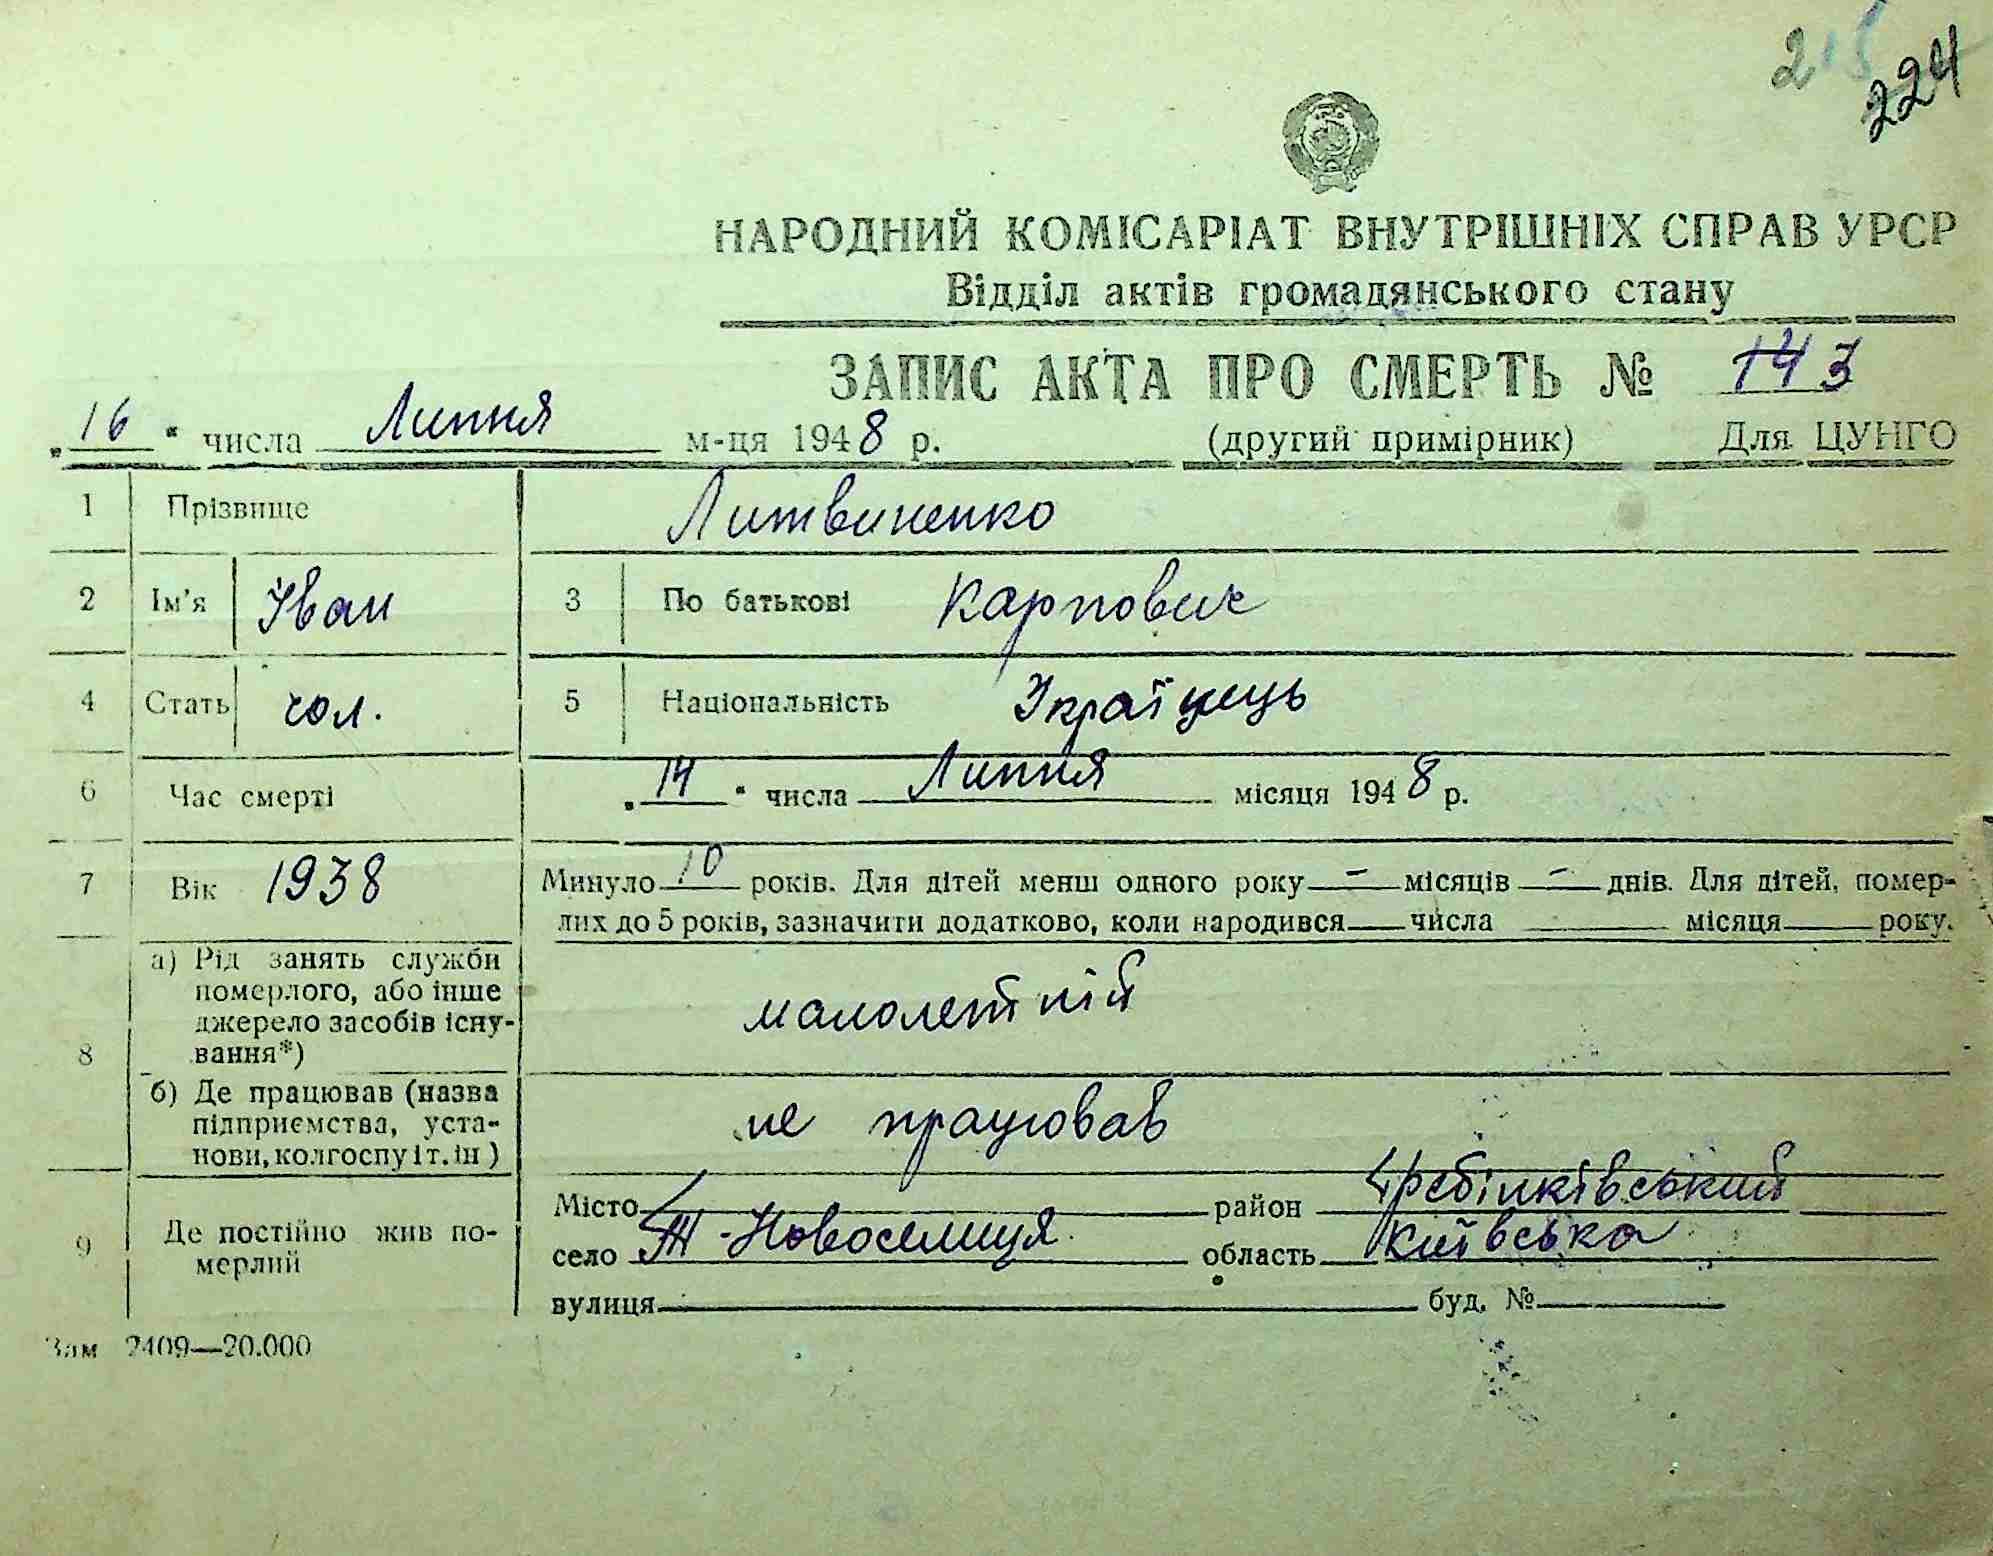 215
224
НАРОДНИЙ КОМІСАРІАТ ВНУТРІШНІХ СПРАВ УРСР
Відділ актів громадянського стану
ЗАПИС АКТА ПРО СМЕРТЬ № 143
„16“ числа Липня м-ця 1948 р. (другий примірник) Для ЦУНГО
1 Прізвище Литвиненко
2 Ім’я Іван 3 По батькові Карпович
4 Стать чол. 5 Національність Українець
6 Час смерті „14“ числа Липня місяця 1948 р.
7 Вік 1938 Минуло 10 років. Для дітей менш одного року — місяців — днів. Для дітей, помер-
лих до 5 років, зазначити додатково, коли народився числа місяця року.
8 а) Рід занять служби
померлого, або інше
джерело засобів існу-
вання*)
малолетній
б) Де працював (назва
підприємства, уста-
нови, колгоспу і т. ін)
не працював
9 Де постійно жив по-
мерлий
Місто район Гребінківський
село Новоселиця область Київська
вулиця буд. №
Зам 2409—20.000